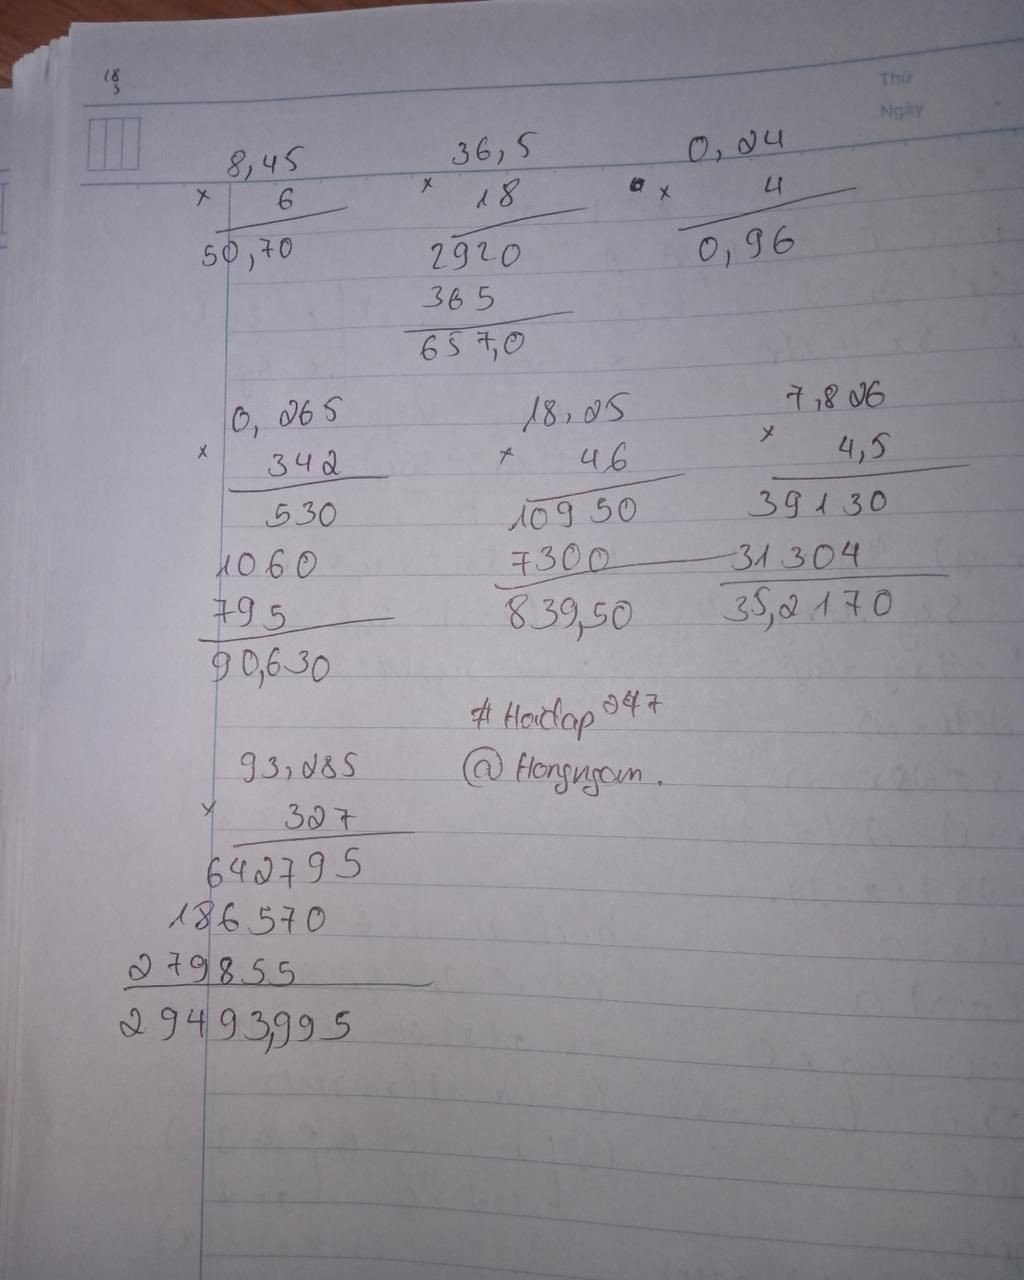 18
3
Thứ
Ngày
8,45
× 6
50,70
36,5
× 18
2920
365
657,0
0,24
× 4
0,96
0,265
× 342
530
1060
795
90,630
18,25
× 46
10950
7300
839,50
7,826
× 4,5
39130
31304
35,2170
# Hoidap247
@ Hongngam.
93,285
× 327
642795
186570
279855
29493,995